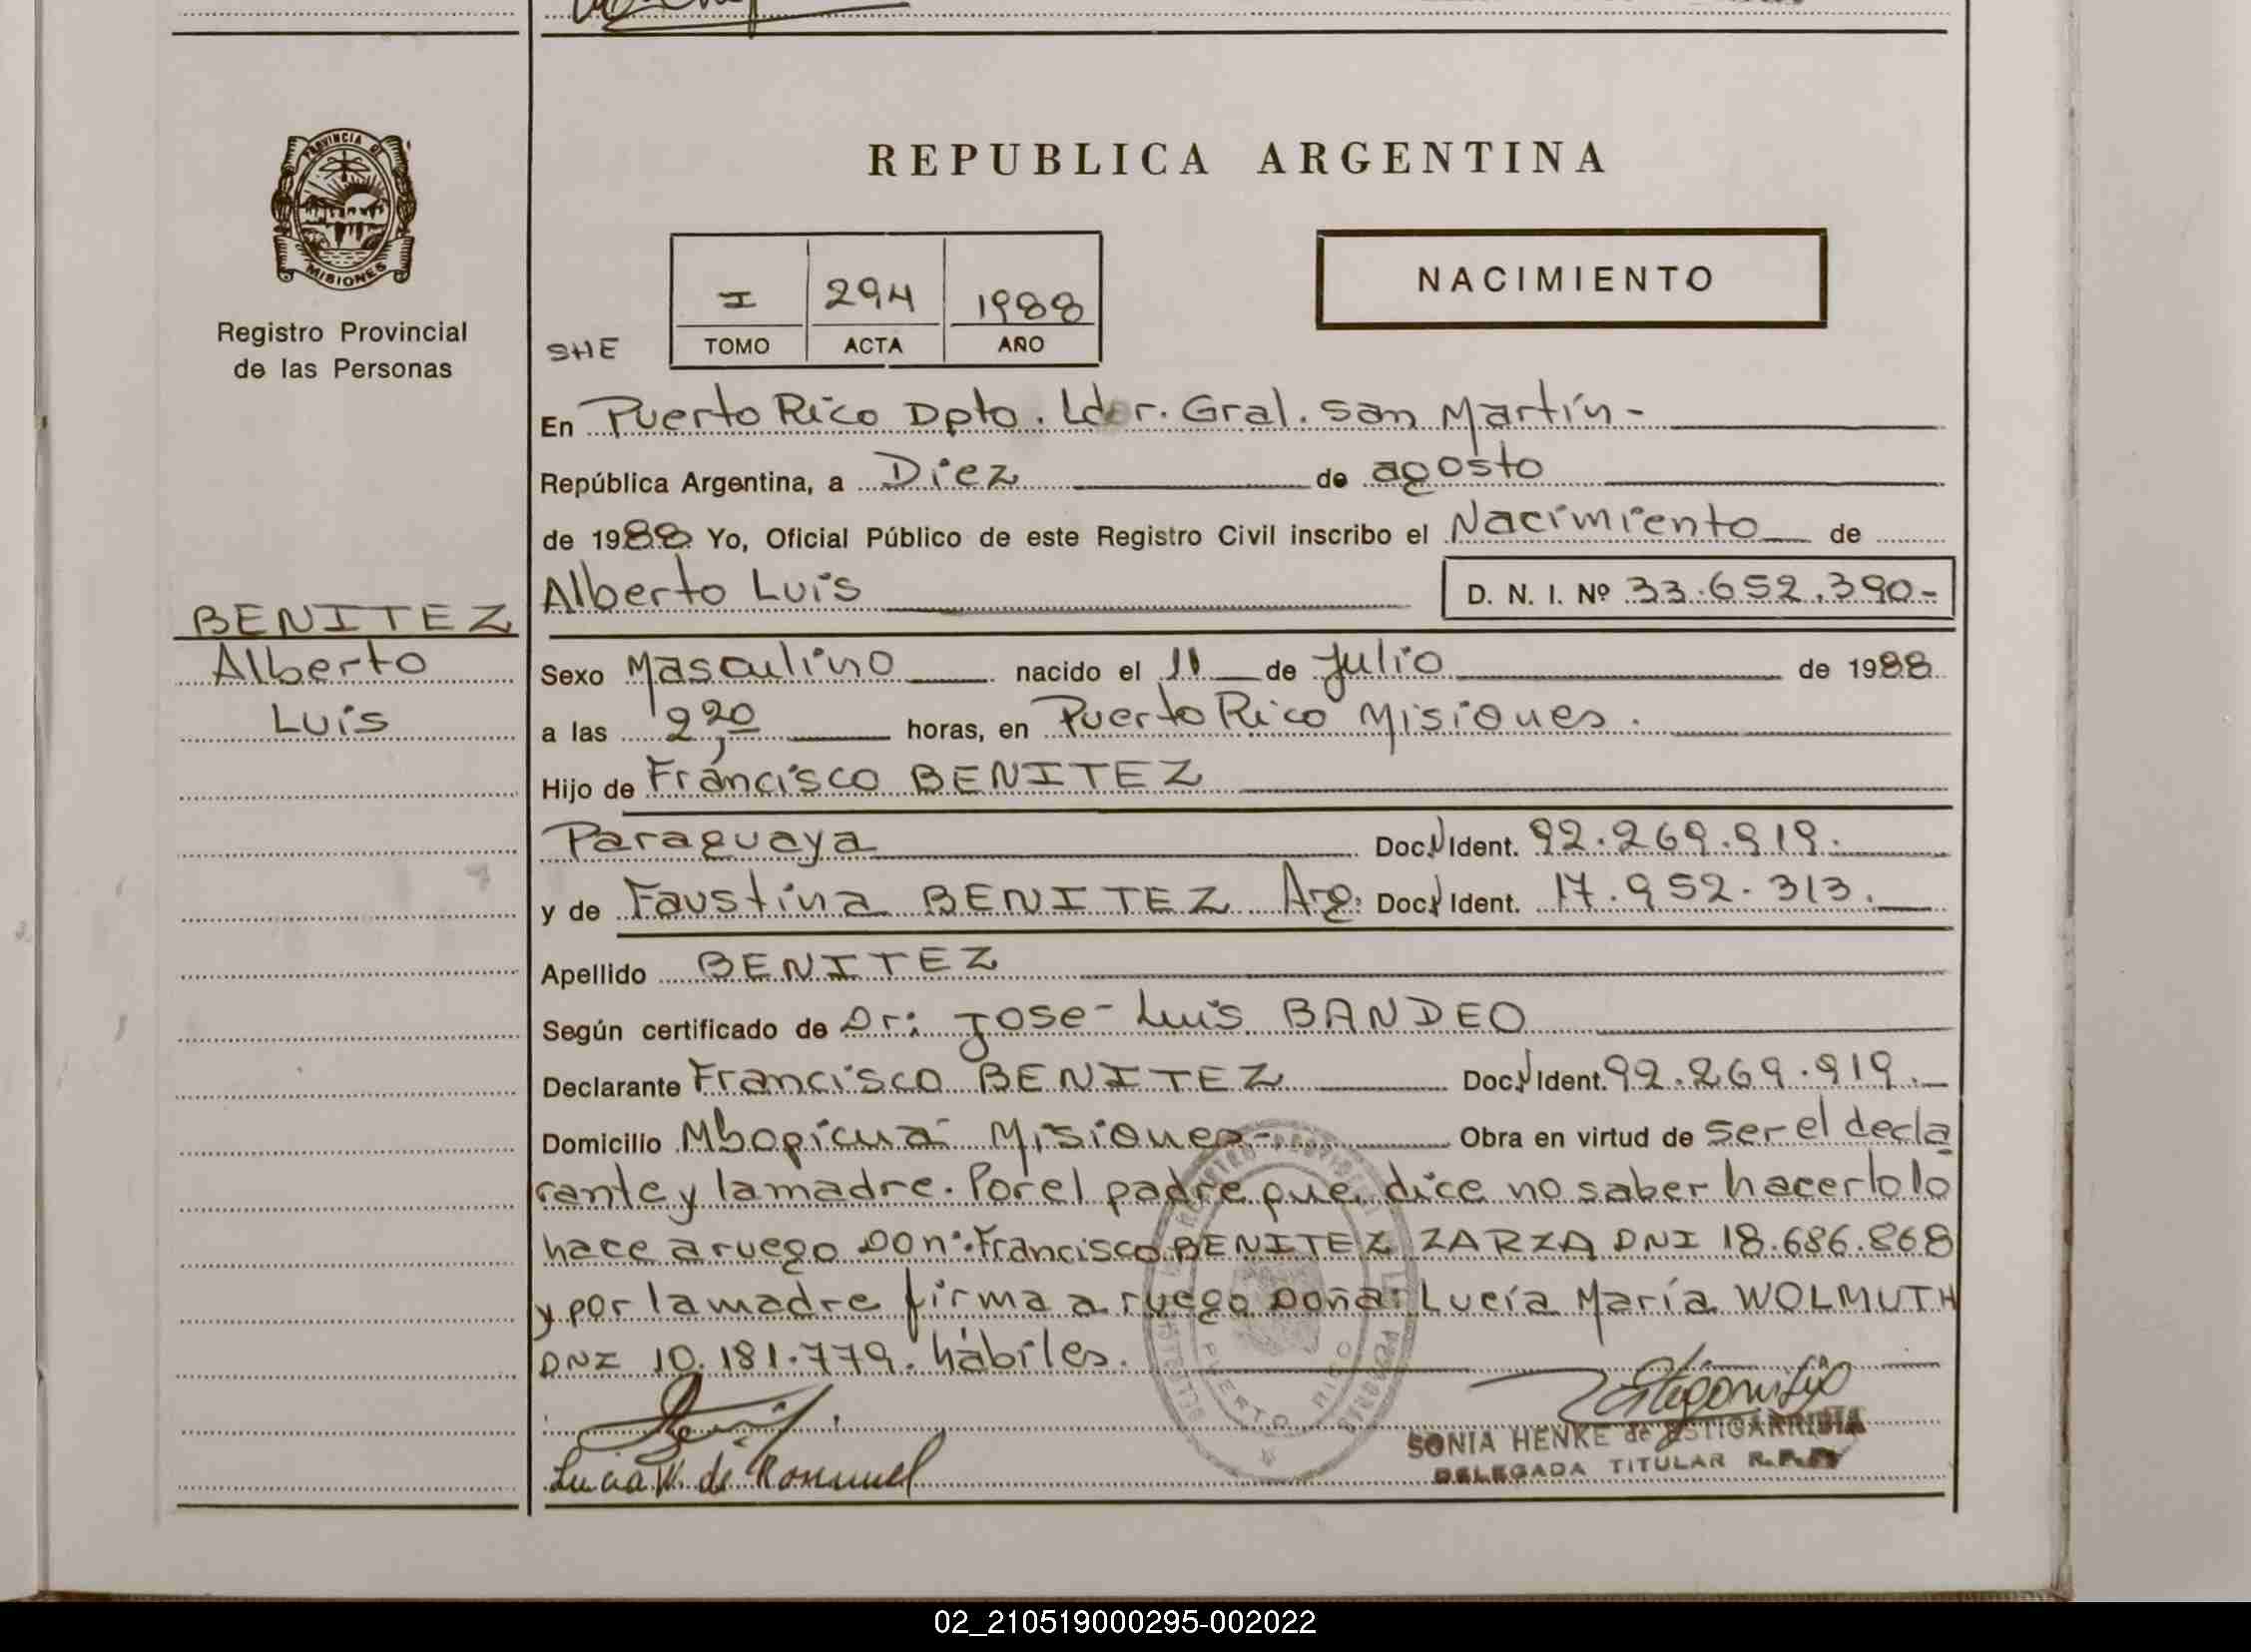 PROVINCIA DE
MISIONES
Registro Provincial
de las Personas
REPUBLICA ARGENTINA
I 294 1988
TOMO ACTA AÑO
NACIMIENTO
SHE
En Puerto Rico Dpto. Ldor. Gral. San Martín-
República Argentina, a Diez de agosto
de 1988 Yo, Oficial Público de este Registro Civil inscribo el Nacimiento de
Alberto Luis D. N. I. Nº 33.652.390-
BENITEZ
Alberto
Luis
Sexo Masculino nacido el 11 de Julio de 1988
a las 2,20 horas, en Puerto Rico Misiones.
Hijo de Francisco BENITEZ
Paraguaya Doc. Ident. 92.269.919.
y de Faustina BENITEZ Arg. Doc. Ident. 17.952.313.
Apellido BENITEZ
Según certificado de Dr: Jose Luis BANDEO
Declarante Francisco BENITEZ Doc. Ident. 92.269.919.
Domicilio Mbopicuá Misiones- Obra en virtud de ser el decla
rante y la madre. Por el padre que dice no saber hacerlo lo
hace a ruego Don: Francisco BENITEZ ZARZA DNI 18.686.868
y por la madre firma a ruego Doña: Lucía María WOLMUTH
DNI 10.181.779. hábiles.
PUERTO RICO
Lucia W. de
SONIA HENKE de ESTIGARRIBIA
DELEGADA TITULAR R.P.P.
02_210519000295-002022